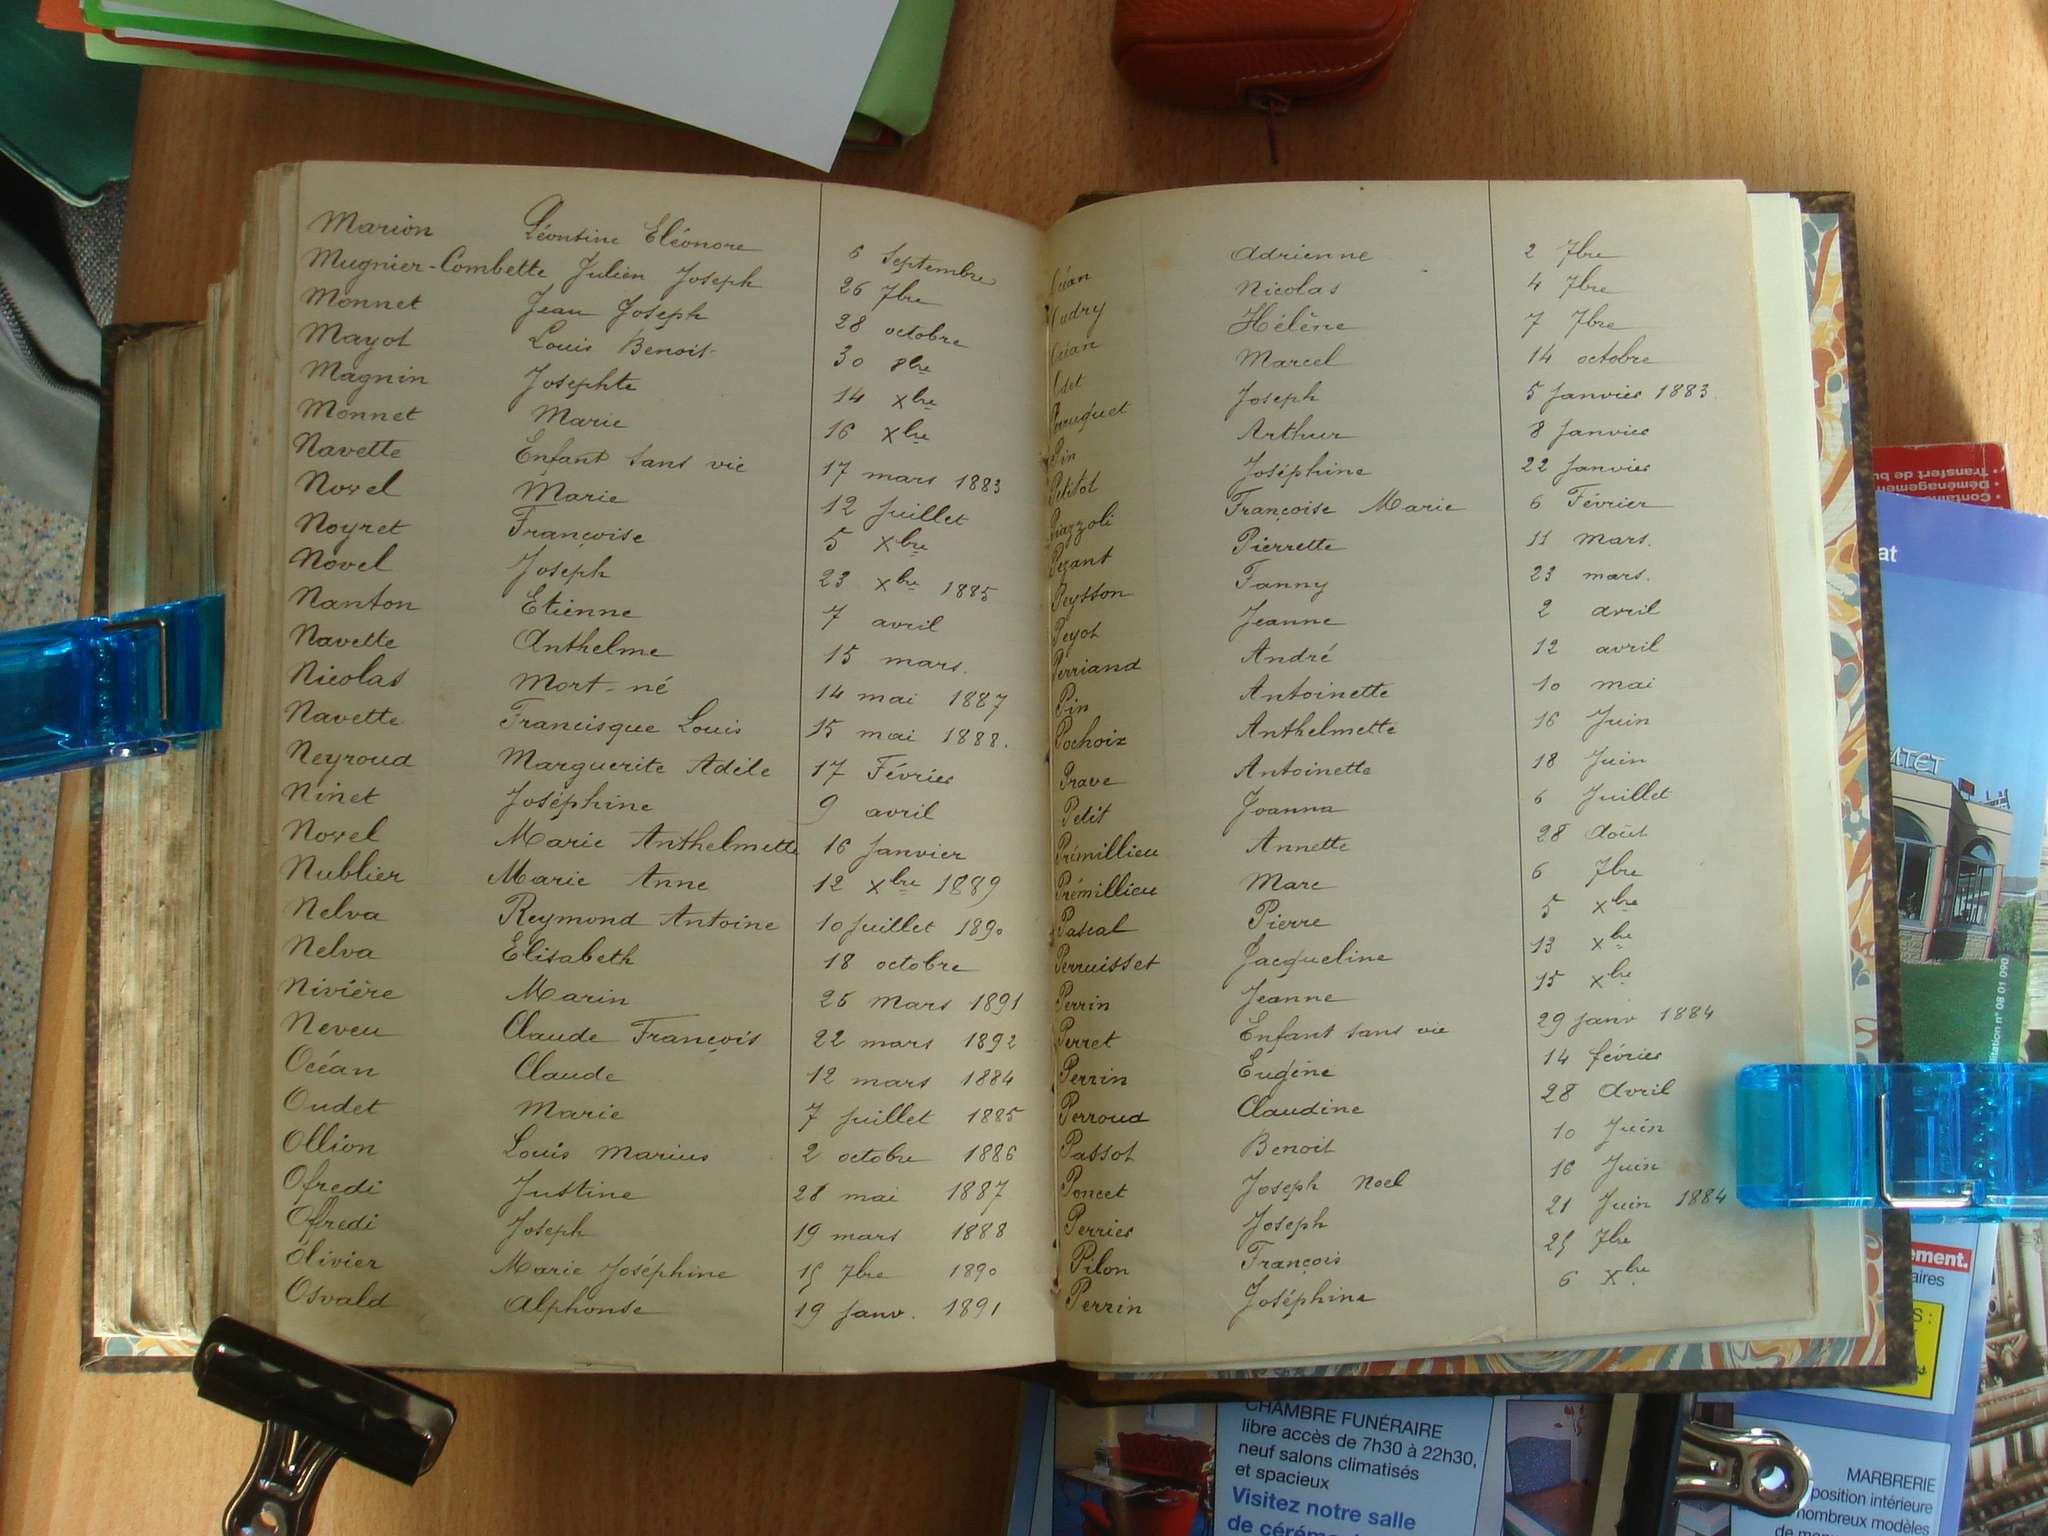 Marion Léontine Eléonore 6 Septembre
Mugnier-Combette Julien Joseph 26 7bre
Monnet Jean Joseph 28 octobre
Mayot Louis Benoit 30 8bre
Magnin Josephte 14 Xbre
Monnet Marie 16 Xbre
Navette Enfant sans vie 17 mars 1883
Novel Marie 12 Juillet
Noyret Françoise 5 Xbre
Novel Joseph 23 Xbre 1885
Nanton Etienne 7 avril
Navette Anthelme 15 mars.
Nicolas Mort-né 14 mai 1887
Navette Francisque Louis 15 mai 1888.
Neyroud Marguerite Adèle 17 Février
Ninet Joséphine 9 avril
Novel Marie Anthelmette 16 Janvier
Nublier Marie Anne 12 Xbre 1889
Nelva Reymond Antoine 10 Juillet 1890
Nelva Elisabeth 18 octobre
Nivière Marin 26 mars 1891
Neveu Claude François 22 mars 1892
Océan Claude 12 mars 1884
Oudet Marie 7 Juillet 1885
Ollion Louis Marius 2 octobre 1886
Ofredi Justine 28 mai 1887
Offredi Joseph 19 mars 1888
Olivier Marie Joséphine 15 7bre 1890
Osvald Alphonse 19 Janv. 1891
Océan Adrienne 2 7bre
Nicolas 4 7bre
Océan Hélène 7 7bre
Marcel 14 octobre
Joseph 5 Janvier 1883.
Pin Arthur 8 Janvier
Petitot Joséphine 22 Janvier
Piazzoli Françoise Marie 6 Février
Pezant Pierrette 11 mars.
Peysson Fanny 23 mars.
Peyot Jeanne 2 avril
Perriand André 12 avril
Pin Antoinette 10 mai
Pochoix Anthelmette 16 Juin
Prave Antoinette 18 Juin
Petit Joanna 6 Juillet
Prémillieu Annette 28 Août
Prémillieu Marc 6 7bre
Pascal Pierre 5 Xbre
Perruisset Jacqueline 13 Xbre
Perrin Jeanne 15 Xbre
Perret Enfant sans vie 29 Janv 1884
Perrin Eugène 14 février
Perroud Claudine 28 Avril
Passot Benoit 10 Juin
Poncet Joseph Noel 16 Juin
Perrier Joseph 21 Juin 1884
Pilon François 25 7bre
Perrin Joséphine 6 Xbre
Déménagement
Transfert de bu
at
n° 08 01 090
ement.
aires
CHAMBRE FUNÉRAIRE
libre accès de 7h30 à 22h30,
neuf salons climatisés
et spacieux
Visitez notre salle
de
MARBRERIE
position intérieure
nombreux modèles